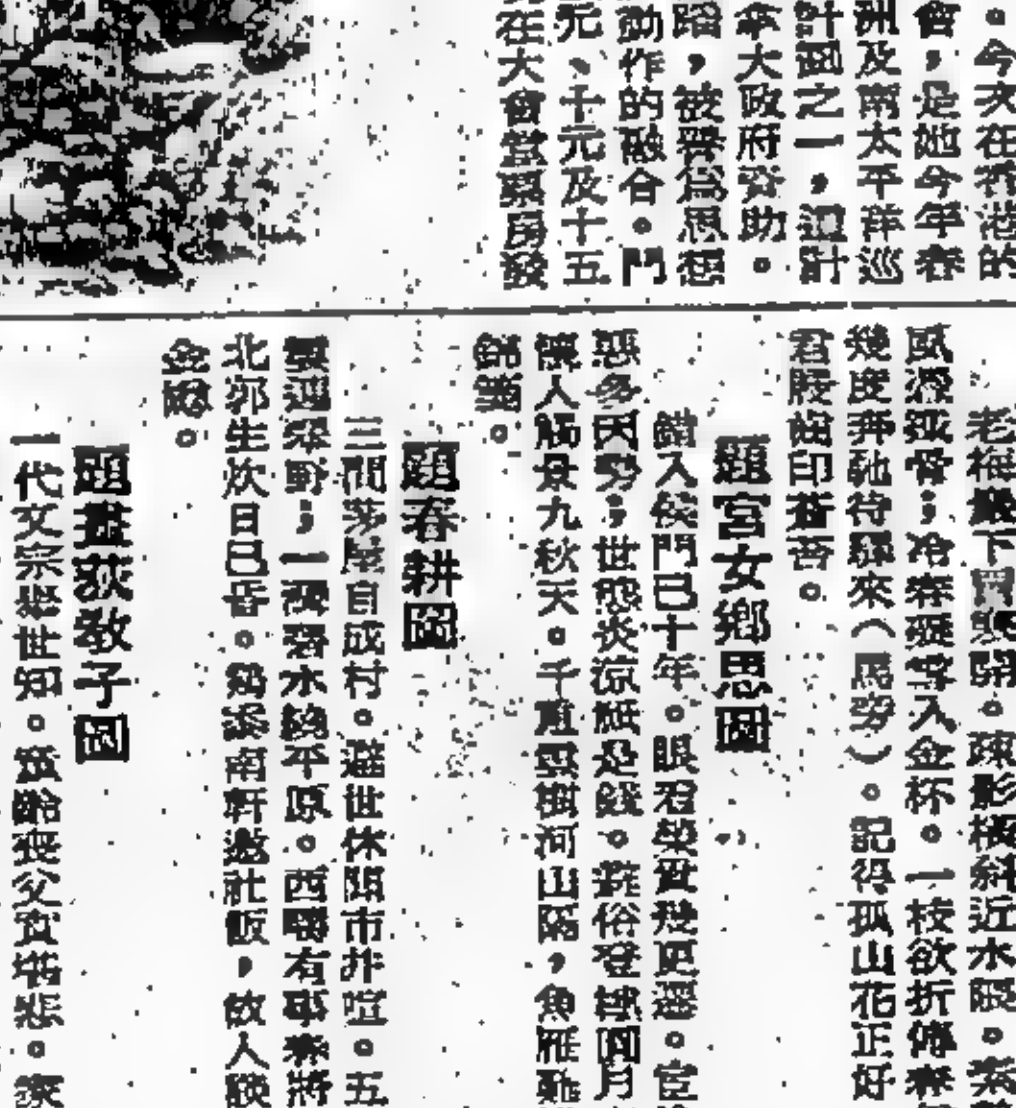 。今次在香港的
會，是她今年春
洲及南太平洋巡
計劃之一，這計
拿大政府資助。
蹈，被譽爲思想
動作的融合。門
元、十元及十五
在大會堂票房發
老梅嚴下開。疎影橫斜近水限。
風漂孤骨；冷春凝雪入金杯。一枝欲折傳春
幾度奔馳待驛來（馬旁）。記得孤山花正好
君屐齒印蒼苔。
題宮女鄉思圖
錯入侯門已十年。眼看榮貴幾更遷。宦
惑多因勞；世態炎涼祗是錢。難俗登樓圓月
懷人觸景九秋天。千重雲樹河山隔，魚雁難
錦箋。
題春耕圖
三間茅屋自成村。避世休閒市井喧。五
翠野；一灣碧水繞平原。西疇有事春將
北郭生炊日已昏。南軒邀社飯，故人談
題畫荻教子圖
一代文宗舉世知。齡喪父實堪悲。家